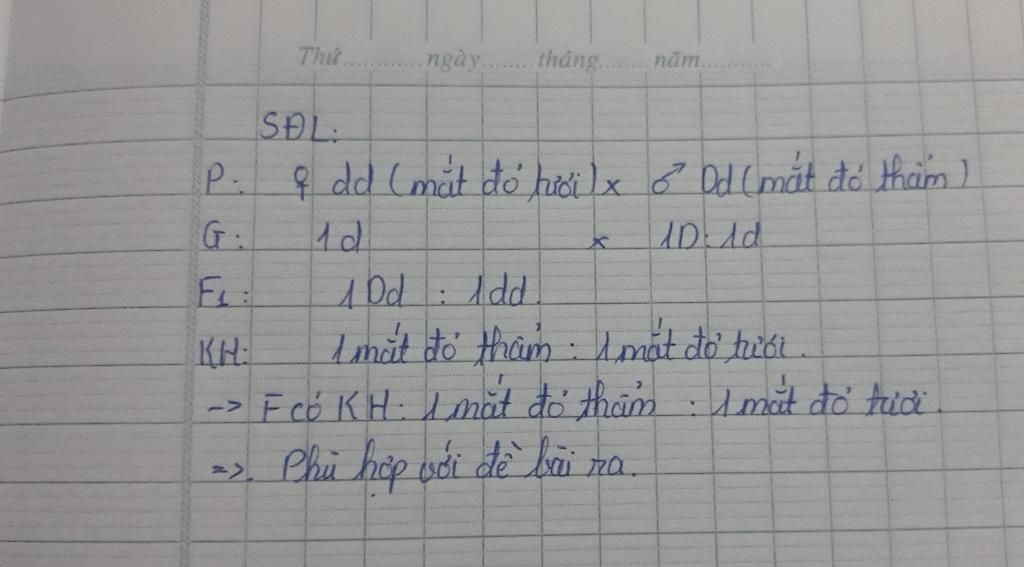 Thứ............ngày.......tháng.......năm..........
SĐL:
P: ♀ dd (mắt đỏ tươi) x ♂ Dd (mắt đỏ thẳm)
G: 1d x 1D:1d
F1: 1Dd : 1dd
KH: 1 mắt đỏ thẳm : 1 mắt đỏ tươi.
-> F có KH: 1 mắt đỏ thẳm : 1 mắt đỏ tươi.
=>. Phù hợp với đề bài ra.